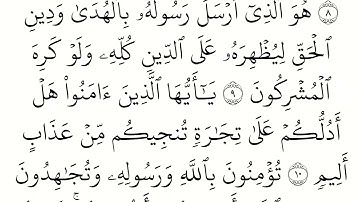 ٨ هُوَ ٱلَّذِىٓ أَرْسَلَ رَسُولَهُۥ بِٱلْهُدَىٰ وَدِينِ
ٱلْحَقِّ لِيُظْهِرَهُۥ عَلَى ٱلدِّينِ كُلِّهِۦ وَلَوْ كَرِهَ
ٱلْمُشْرِكُونَ ٩ يَـٰٓأَيُّهَا ٱلَّذِينَ ءَامَنُوا۟ هَلْ
أَدُلُّكُمْ عَلَىٰ تِجَـٰرَةٍ تُنجِيكُم مِّنْ عَذَابٍ
أَلِيمٍ ١٠ تُؤْمِنُونَ بِٱللَّهِ وَرَسُولِهِۦ وَتُجَـٰهِدُونَ